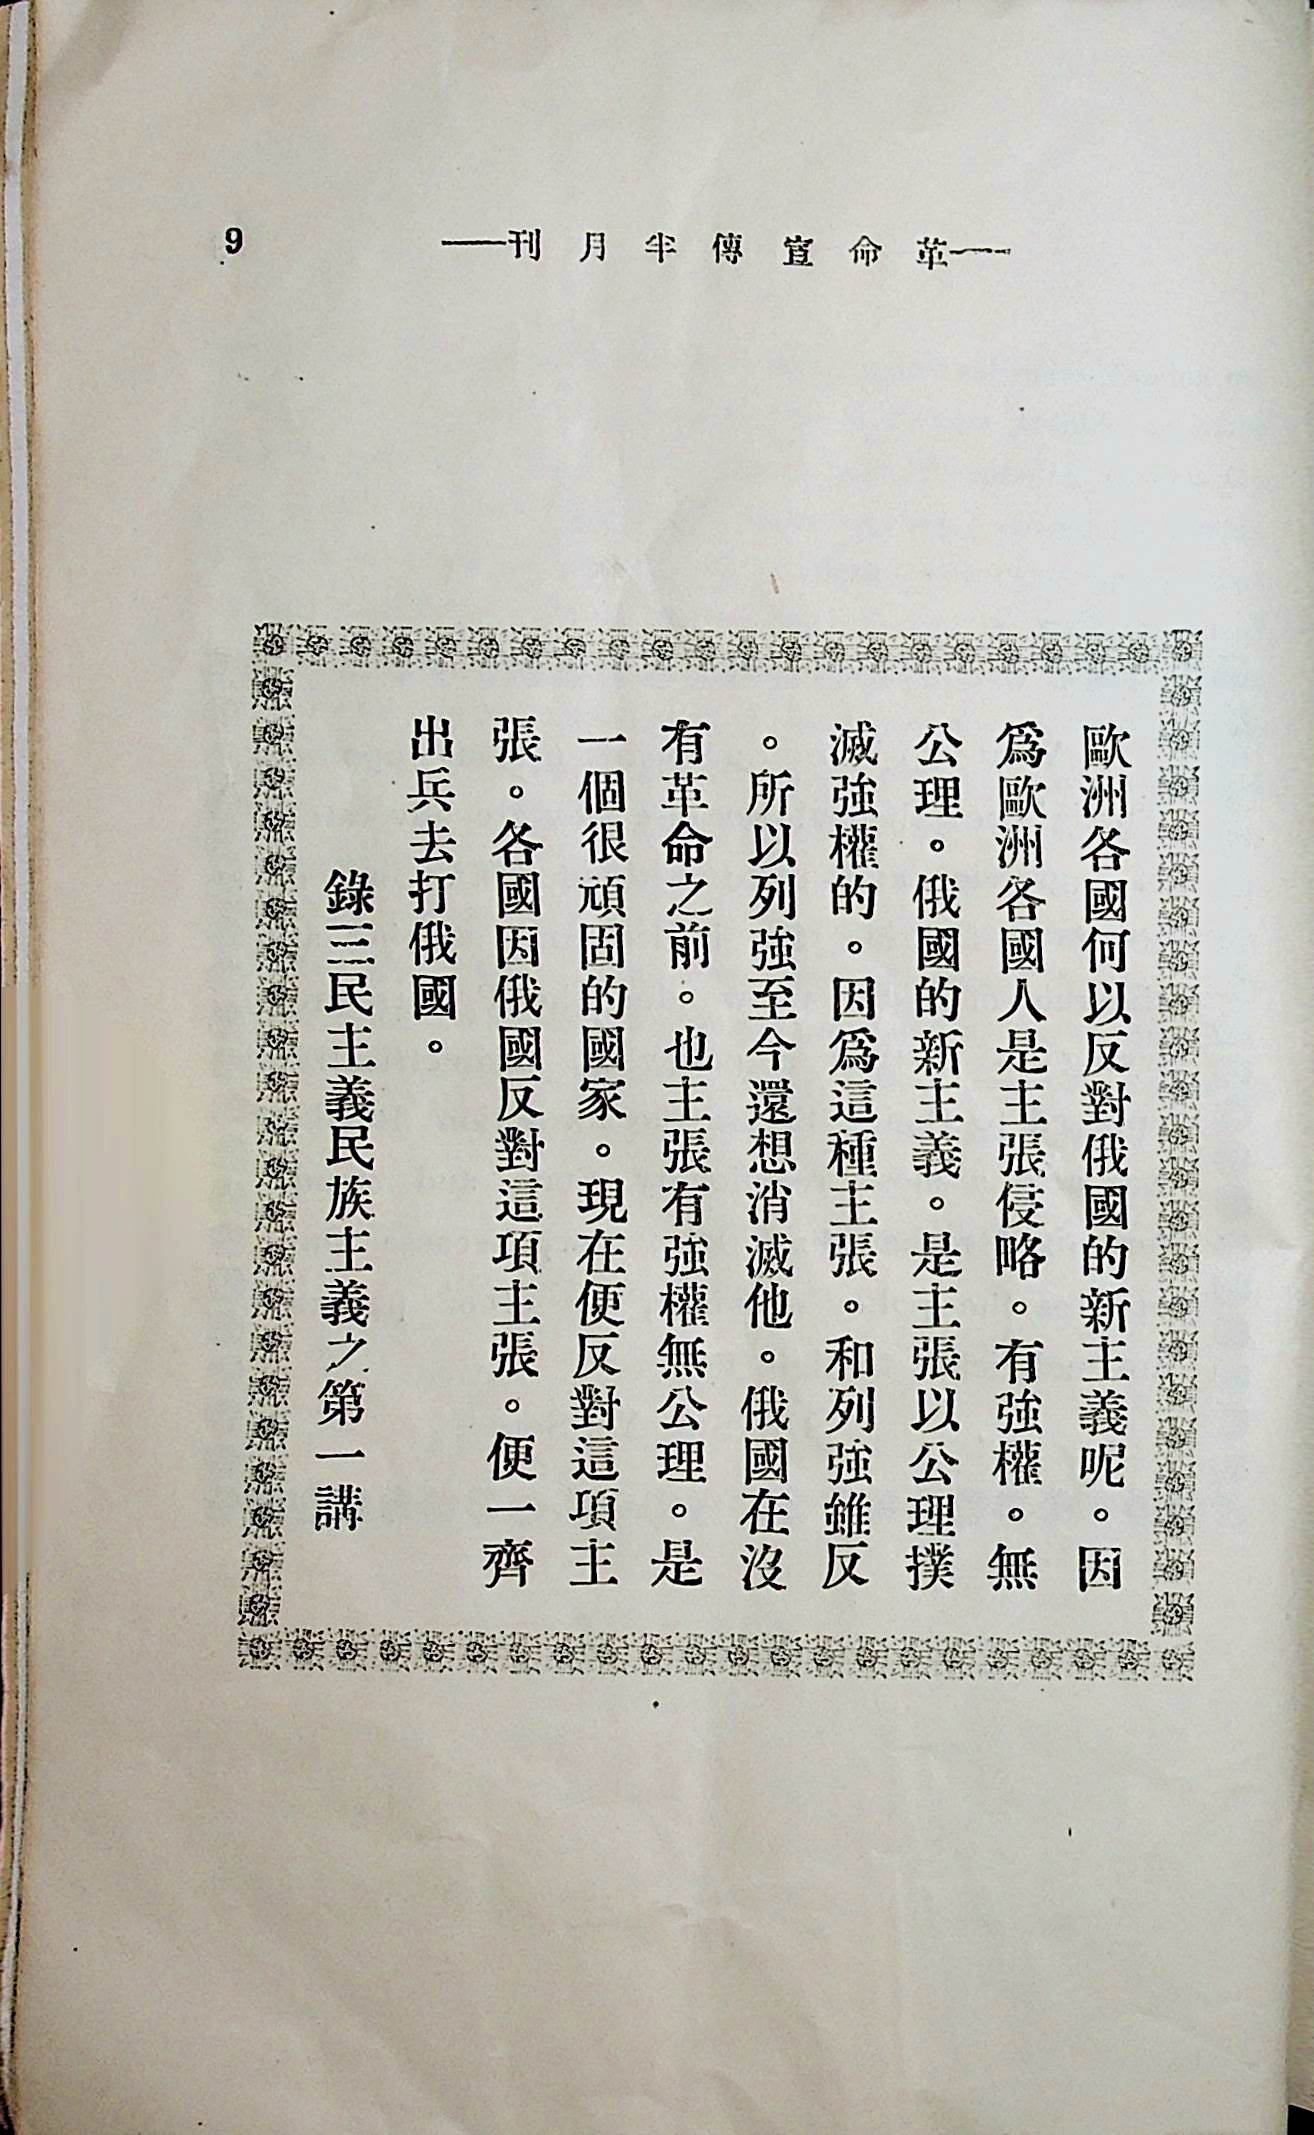 革命宣傳半月刊
9
歐洲各國何以反對俄國的新主義呢。因
爲歐洲各國人是主張侵略。有強權。無
公理。俄國的新主義。是主張以公理撲
滅強權的。因爲這種主張。和列強雖反
。所以列強至今還想消滅他。俄國在沒
有革命之前。也主張有強權無公理。是
一個很頑固的國家。現在便反對這項主
張。各國因俄國反對這項主張。便一齊
出兵去打俄國。
錄三民主義民族主義之第一講